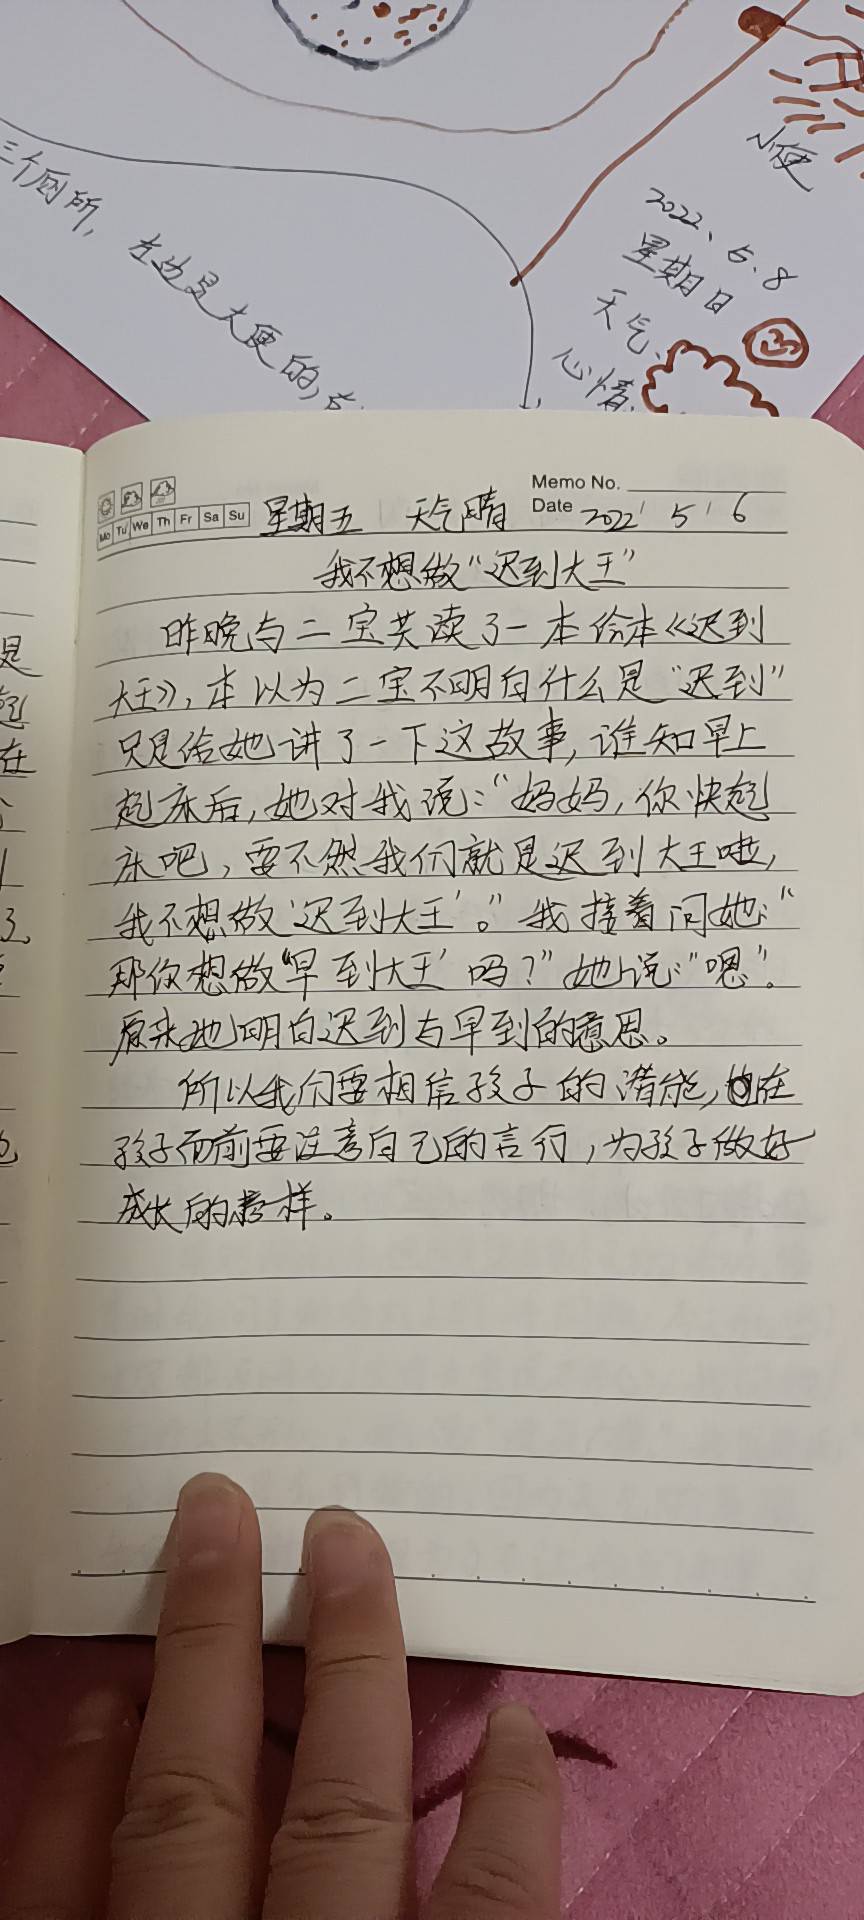 小便
2022.5.8
星期日
天气.
心情.
三个厕所,左边是大便的,
Memo No.
Mo Tu We Th Fr Sa Su 星期五 天气晴 Date 2022 / 5 / 6
我不想做“迟到大王”
昨晚与二宝共读了一本绘本《迟到
大王》,本以为二宝不明白什么是“迟到”
只是给她讲了一下这故事,谁知早上
起床后,她对我说:“妈妈,你快起
床吧,要不然我们就是迟到大王啦,
我不想做‘迟到大王’。”我接着问她:“
那你想做“早到大王’吗?”她说:“嗯”。
原来她明白迟到与早到的意思。
所以我们要相信孩子的潜能,在
孩子面前要注意自己的言行,为孩子做好
成长的榜样。
是
起
在
了.